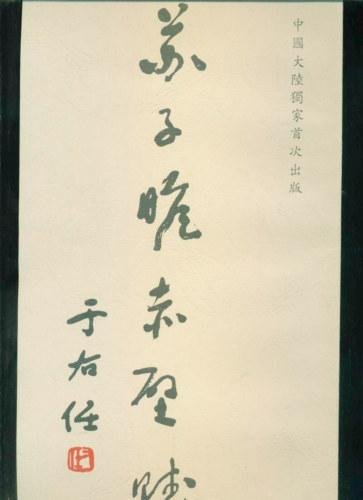 中國大陸獨家首次出版
蘇子瞻赤壁賦
于右任